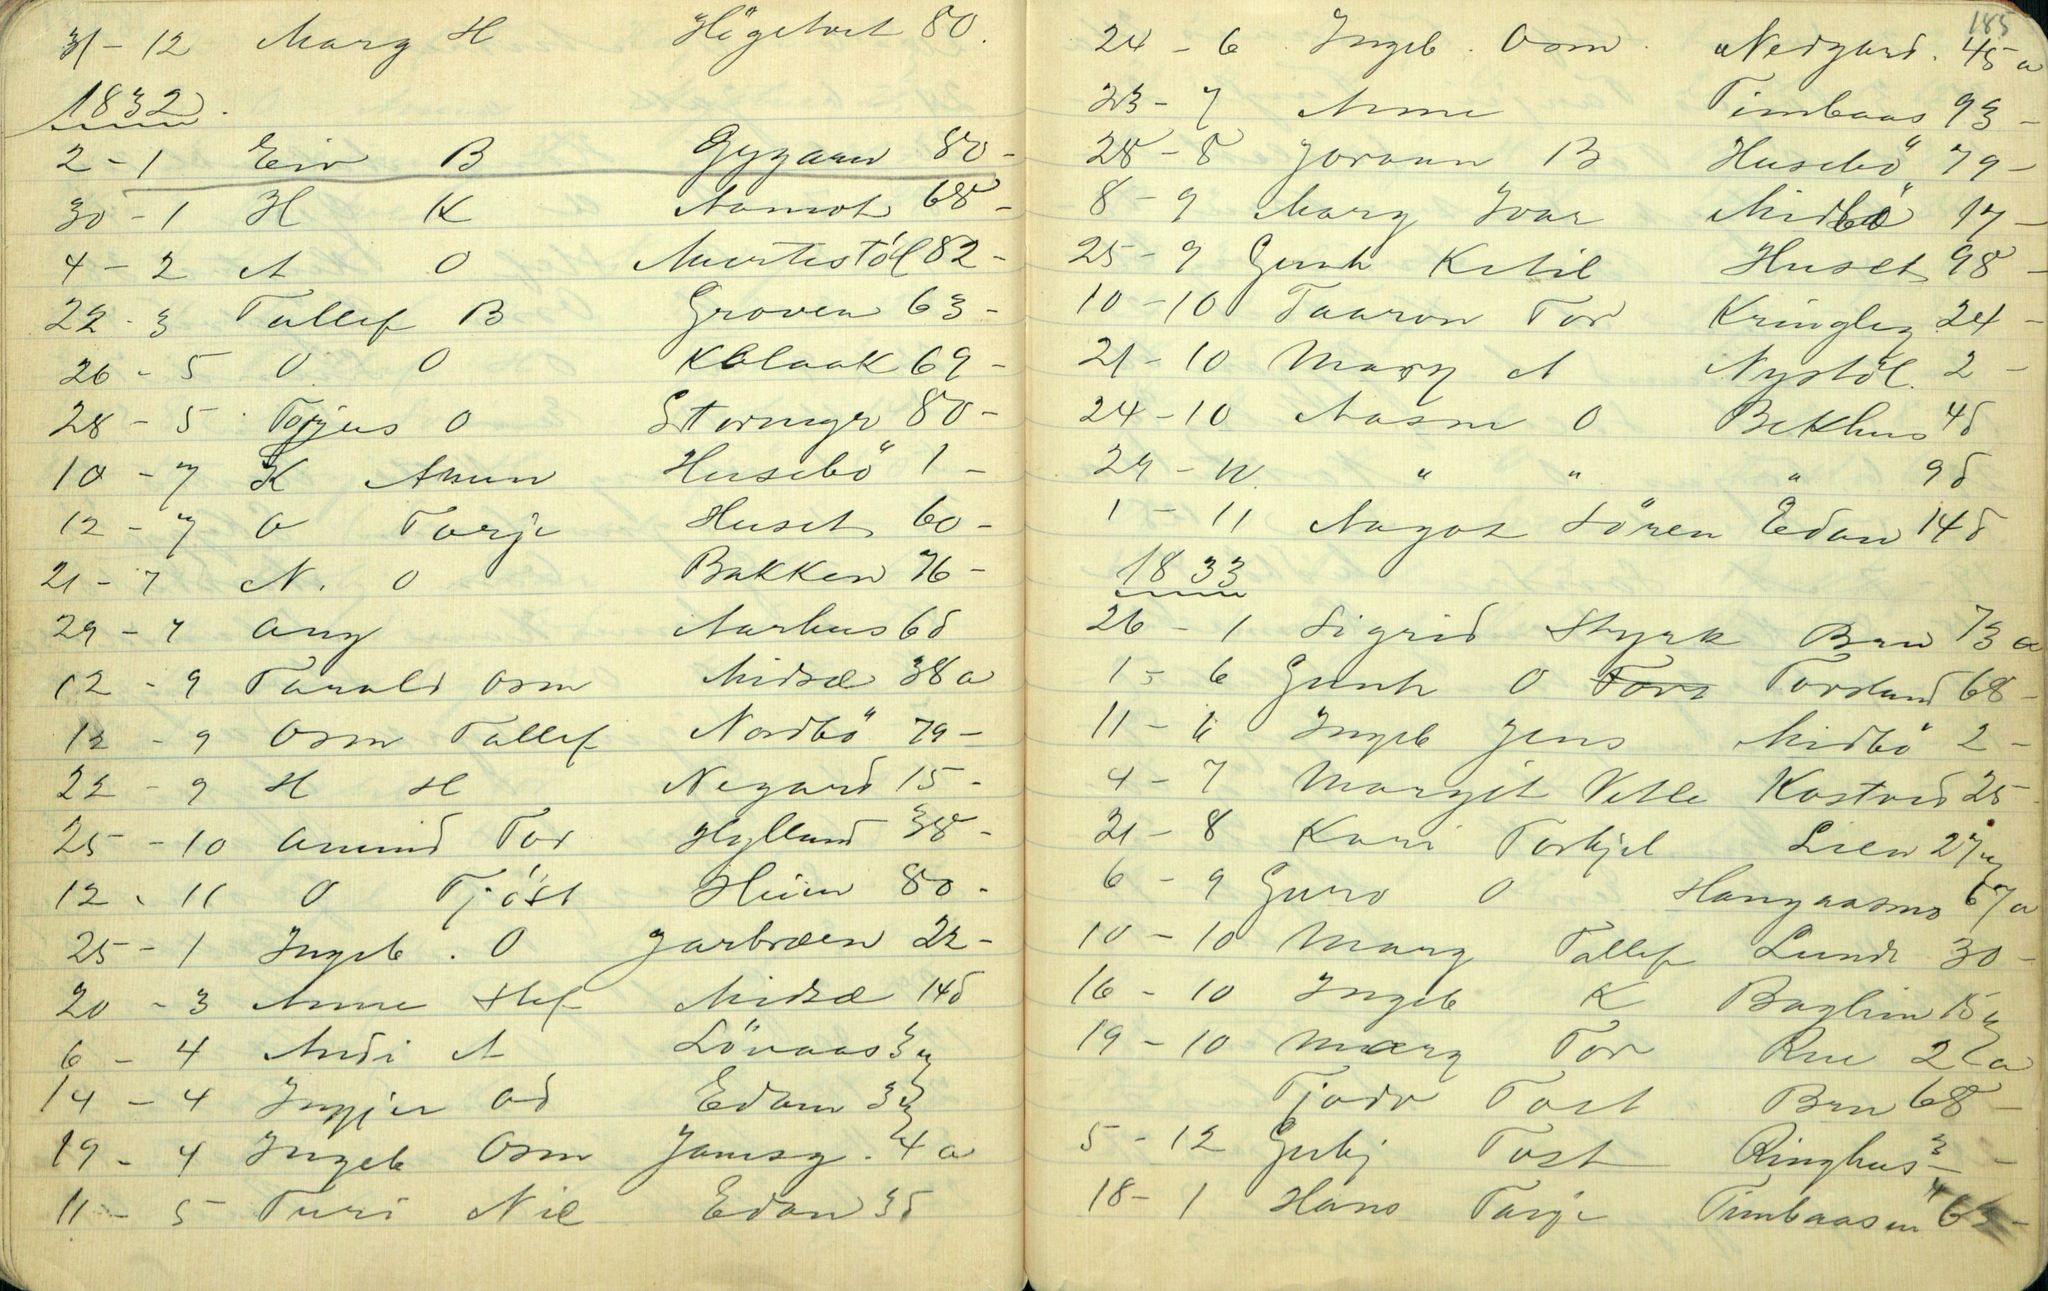 31 - 12 Marg H Högetvet 80.
1832.
2 - 1 Eiv B Gygarn 80 -
30 - 1 H K Aamot 68 -
4 - 2 A O Aavertestöl 82 -
22 - 3 Tallef B Groven 63 -
26 - 5 O O Kblaak 69 -
28 - 5 Torjus O Stormyr 80 -
10 - 7 K Amun Husebö 1 -
12 - 7 O Torje Huset 60 -
21 - 7 N. O Bakken 76 -
29 - 7 Ang Aarhus 6d
12 - 9 Tarald Osm Midsæ 38 a
12 - 9 Osm Tallef Nordbö 79 -
22 - 9 H H Negard 15 -
25 - 10 Amund Tor Hylland 38 -
12 - 11 O Tjöst Heim 80 -
25 - 1 Ingeb. O Jarbræen 22 -
20 - 3 Anne Stef Midsæ 14d
6 - 4 Andi A Lövaas 3 u
14 - 4 Ingjer Od Edam 3 u
19 - 4 Ingeb Osm Jamsg. 4 a
11 - 5 Turi Nil Edan 3d
185
24 - 6 Ingeb. Osm. Nedgard. 45 a
23 - 7 Anne Timbaas 93 -
28 - 8 Joraan B Husebö 79 -
8 - 9 Marg Ivar Midbö 17 -
25 - 9 Gunh Ketil Huset 98 -
10 - 10 Taaron Tor Kringleg 24 -
21 - 10 Marg A Nystöl. 2 -
24 - 10 Aasne O Bekhus 4d
29 - 10 " " " 9d
1 - 11 Aagot Sören Edan 14d
1833
26 - 1 Sigrid Styrk Bru 73 a
1 - 6 Gunh O Tors Torslund 68 -
11 - 6 Ingeb Jens Midbö 2 -
4 - 7 Margit Vetle Kostved 25
21 - 8 Kari Torkjel Lien 27 u
6 - 9 Guro O Haugaasmo 67 a
10 - 10 Marg Tallef Lunde 30 -
16 - 10 Ingeb K Böglim 15 u
19 - 10 Marg Tor Rue 2 a
Tjodv Tost Bru 68 -
5 - 12 Gubj Tost Ringhus 3/4 -
18 - 1 Hans Tarje Timbaasen 63 -